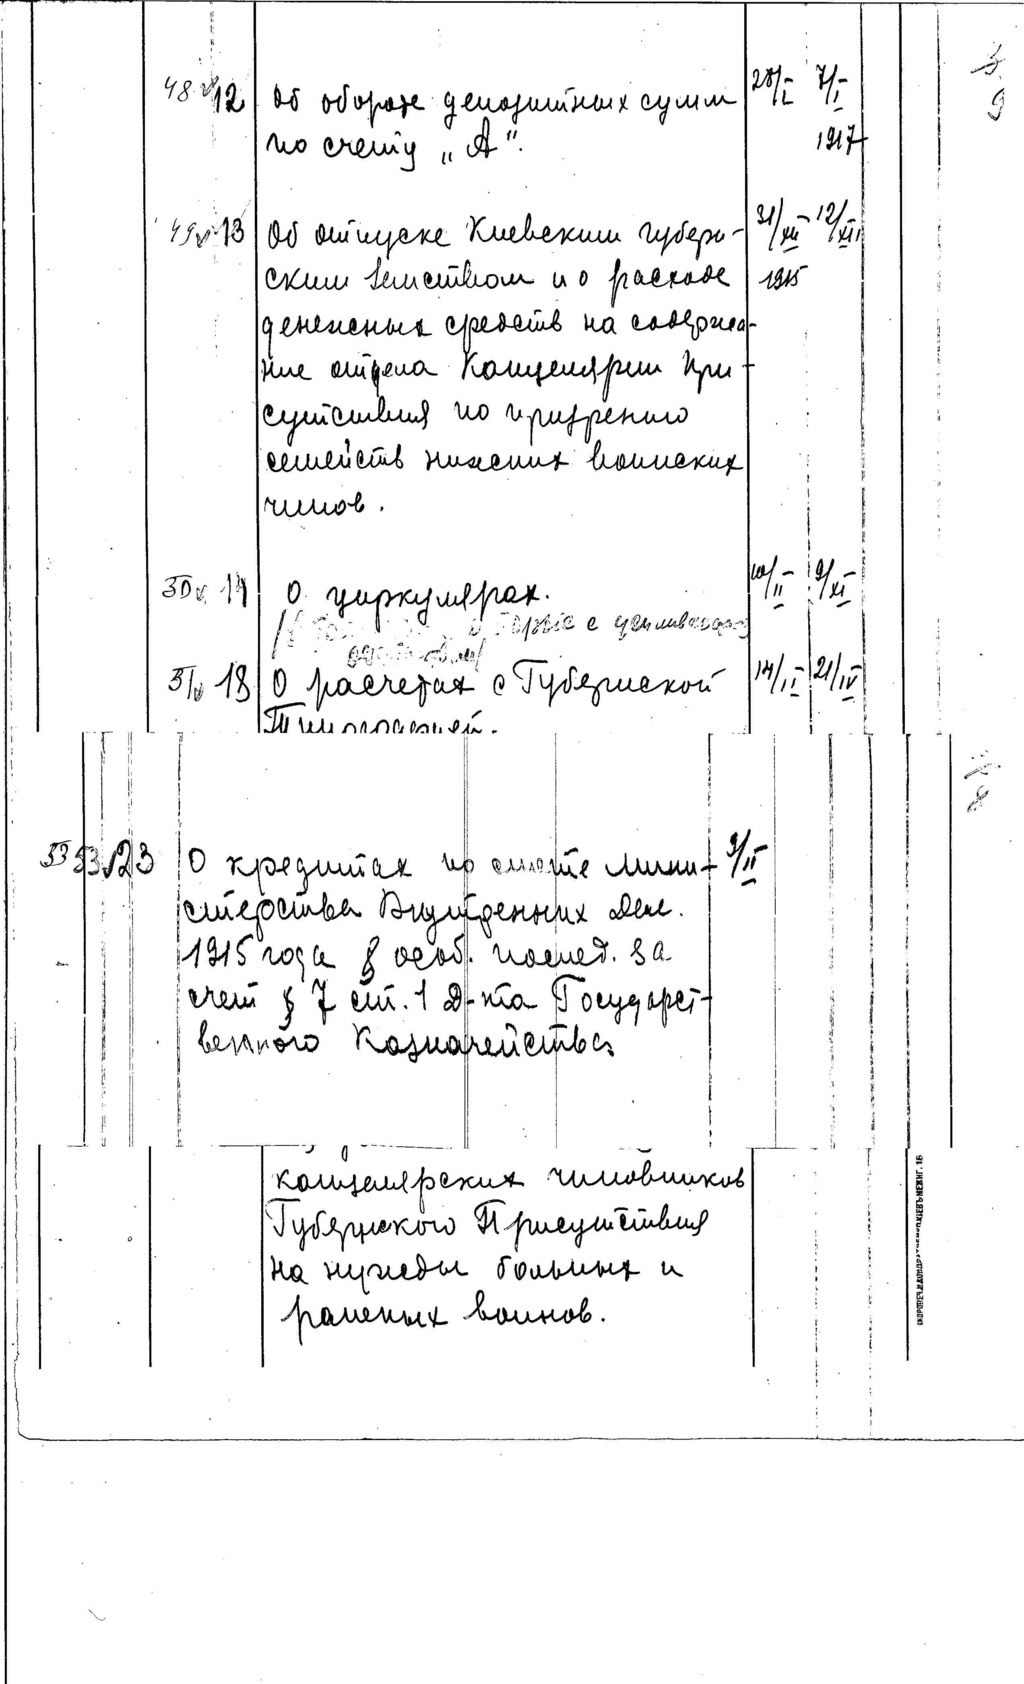 3
9
48 12 Об обороте депозитных сумм 28/I 7/I
по счету „А“. 1917
49 13 Об отпуске Киевским губерн- 31/XII 12/XII
ским Земством и о расходе 1915
денежных средств на содержа-
ние отдела Канцелярии При-
сутствия по призрению
семейств нижних воинских
чинов.
50 14 О циркулярах. 10/II 9/XI
с
51 18 О расчетах с Губернской 14/II 21/IV
Типографией.
8
53 53 23 О кредитах по смете Мини- 9/II
стерства Внутренних Дел.
1915 года § особ. послед. за
счет § 7 ст. 1 Д-та Государст-
венного Казначейства
канцелярских чиновников
Губернского Присутствия
на нужды больных и
раненых воинов.